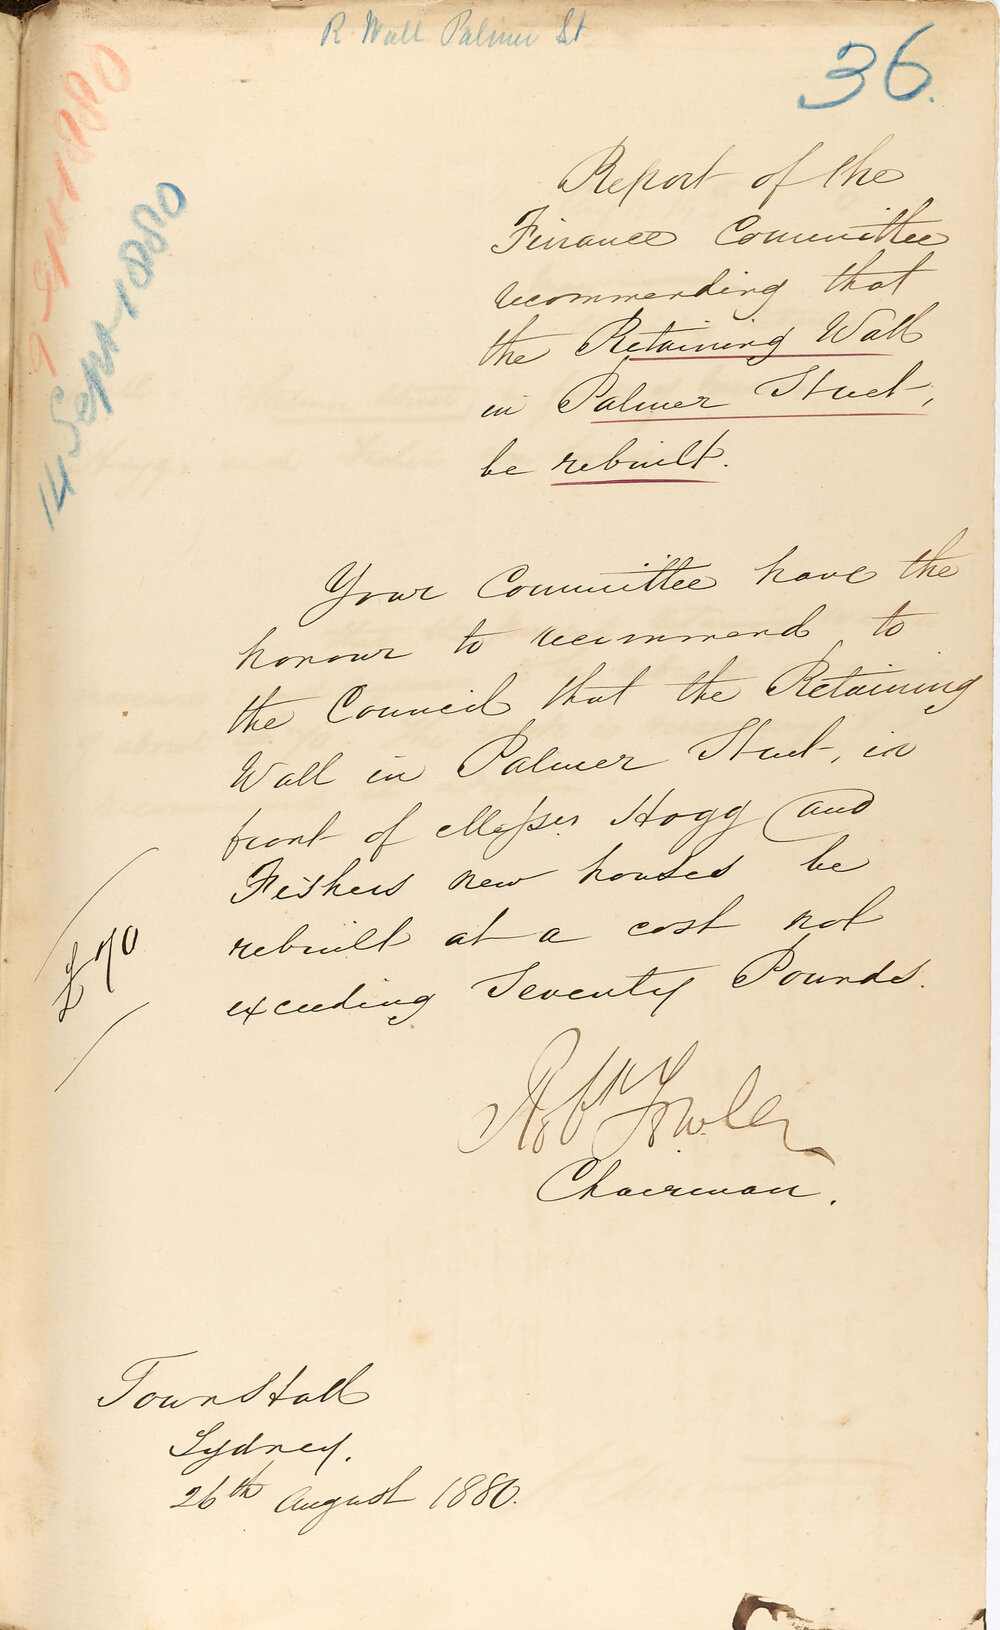 R Wall Palmer St
36.
7 Sept 1880
14 Sept 1880
Report of the
Finance Committee
recommending that
the Retaining Wall
in Palmer Street,
be rebuilt.
Your Committee have the
honour to recommend to
the Council that the Retaining
Wall in Palmer Street, in
front of Messrs Hogg and
Fishers new houses be
rebuilt at a cost not
exceeding Seventy Pounds.
£70
Robt Fowler
Chairman.
Town Hall
Sydney.
26th August 1880.